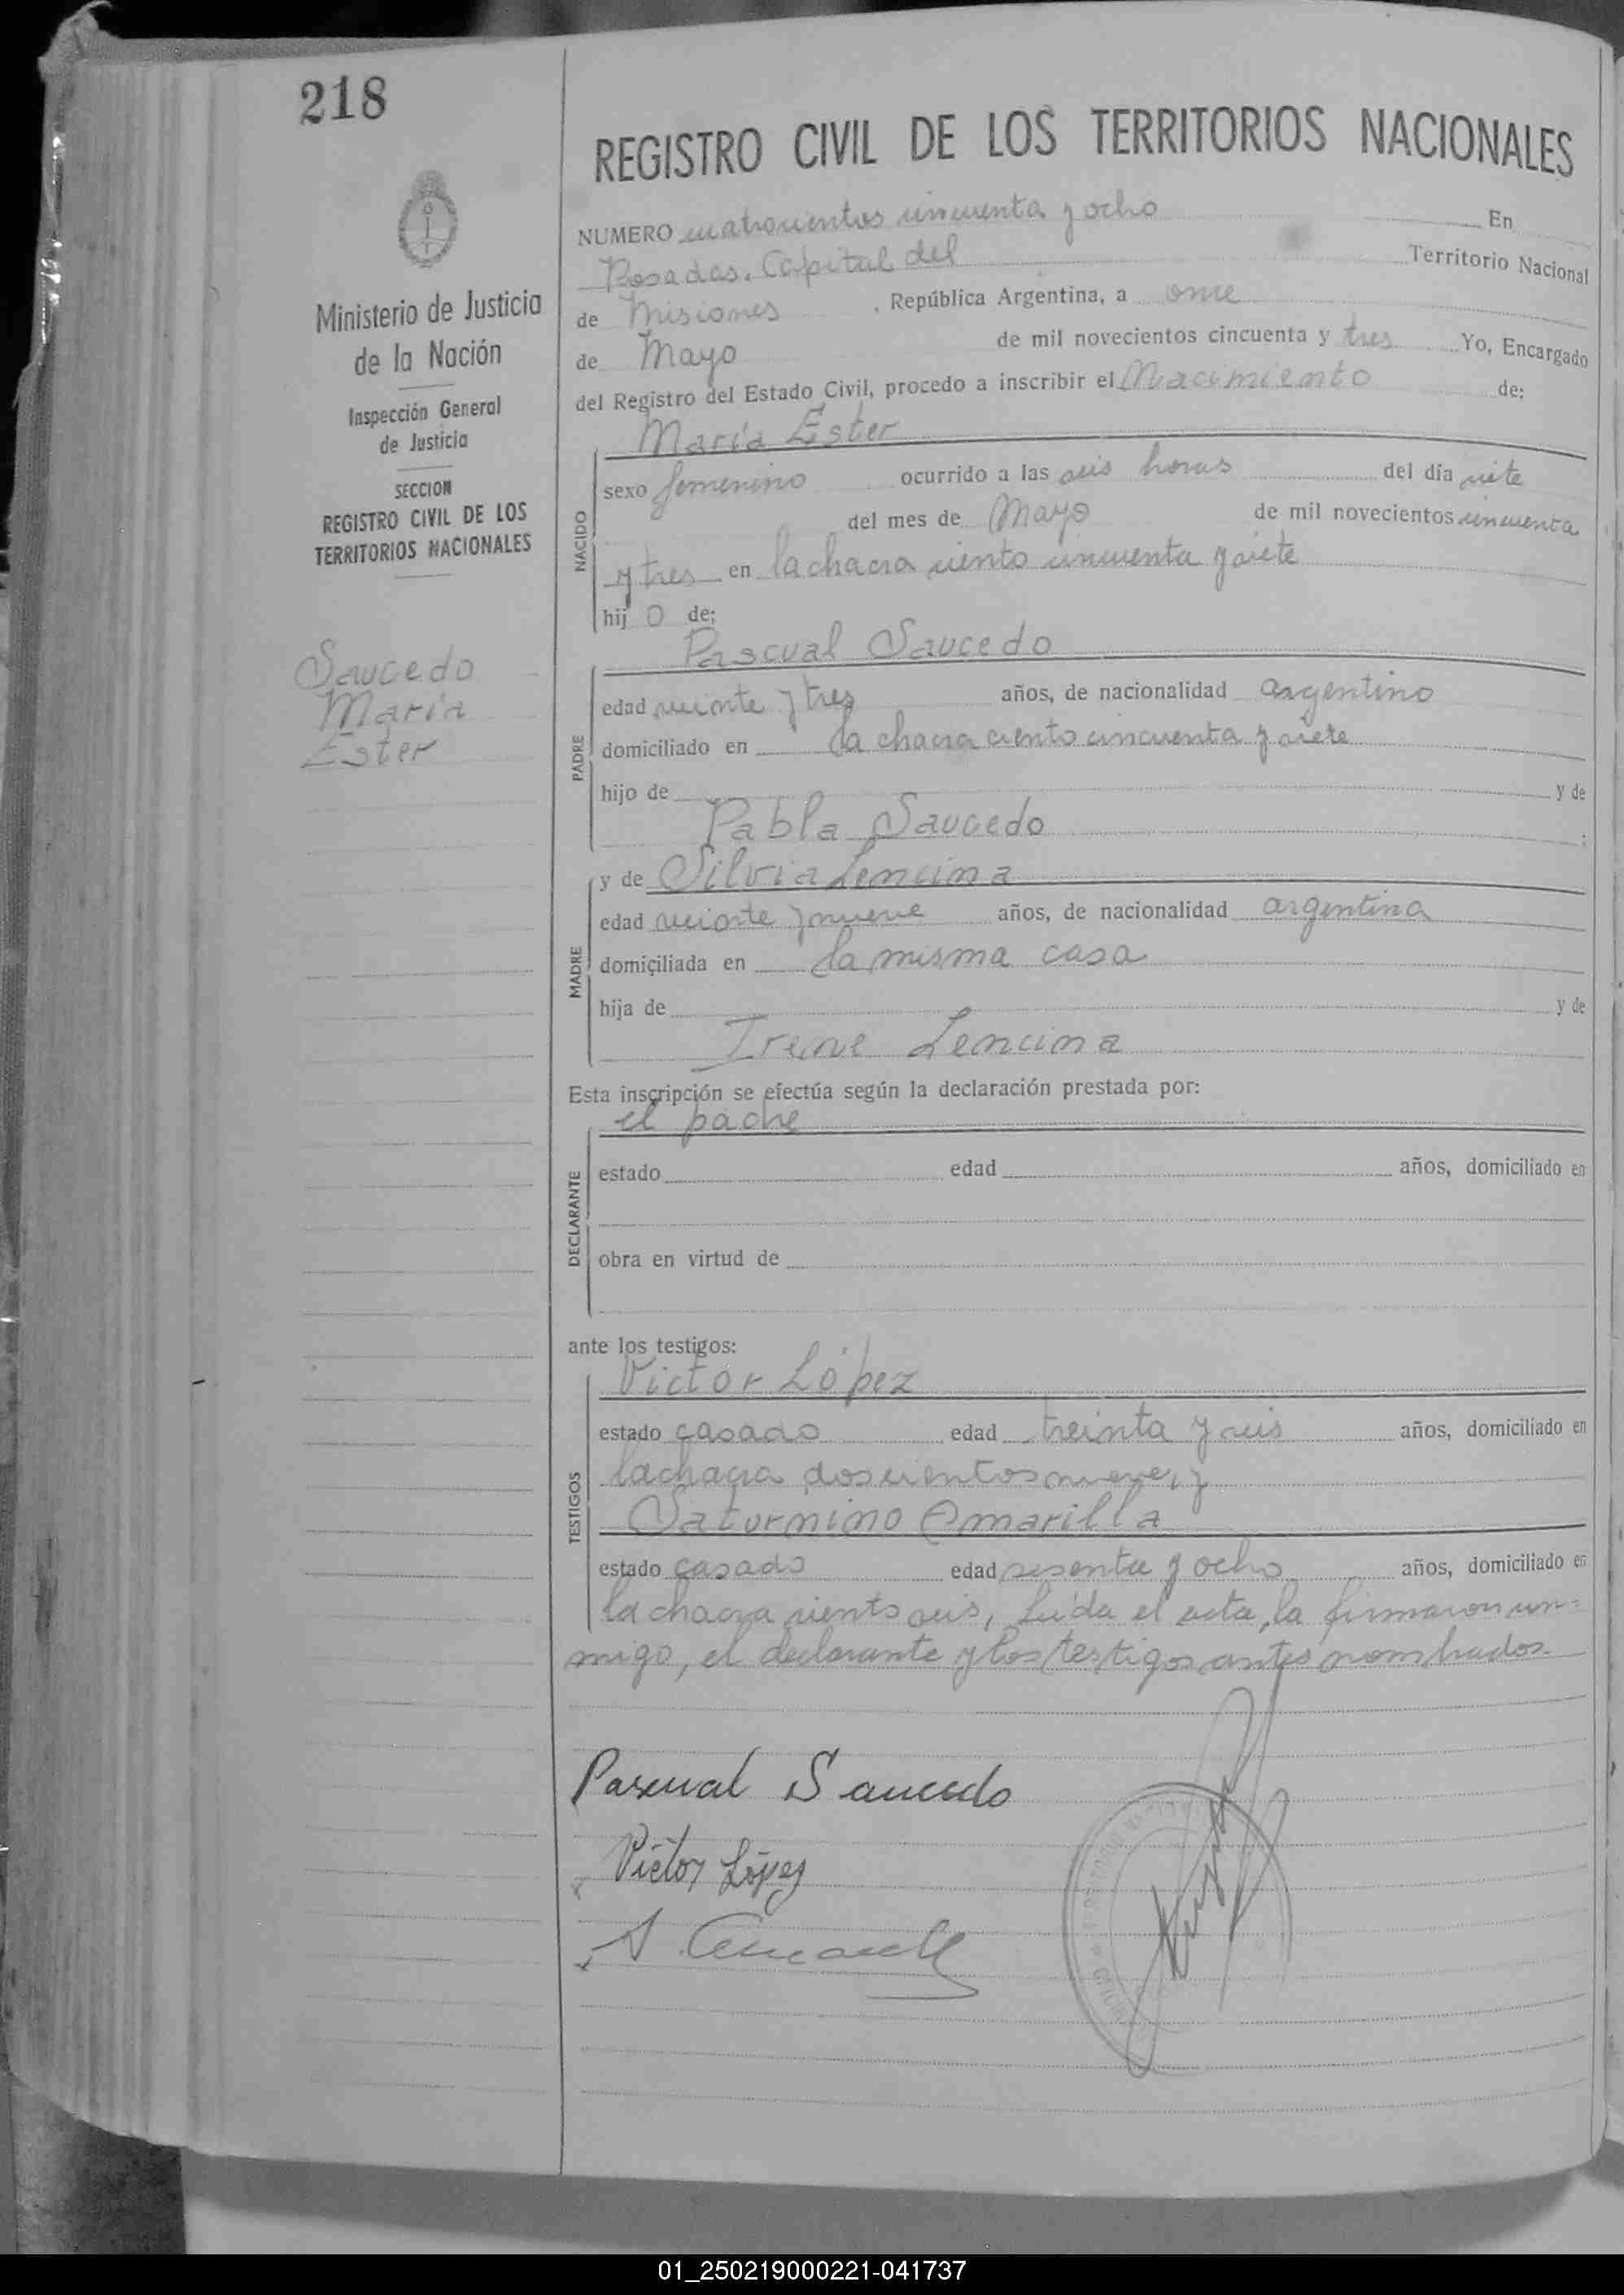 218
REGISTRO CIVIL DE LOS TERRITORIOS NACIONALES
NUMERO cuatrocientos cincuenta y ocho En
Posadas. Capital del Territorio Nacional
de Misiones, República Argentina, a once
de Mayo de mil novecientos cincuenta y tres Yo, Encargado
del Registro del Estado Civil, procedo a inscribir el Nacimiento de:
Ministerio de Justicia
de la Nación
Inspección General
de Justicia
SECCION
REGISTRO CIVIL DE LOS
TERRITORIOS NACIONALES
Saucedo
María
Ester
NACIDO
María Ester
sexo femenino ocurrido a las seis horas del día siete
del mes de Mayo de mil novecientos cincuenta
y tres en la chacra ciento cincuenta y siete
hij o de:
PADRE
Pascual Saucedo
edad veinte y tres años, de nacionalidad argentino
domiciliado en la chacra ciento cincuenta y siete
hijo de y de
Pabla Saucedo ;
MADRE
y de Silvia Lencina
edad veinte y nueve años, de nacionalidad argentina
domiciliada en la misma casa
hija de y de
Irene Lencina
Esta inscripción se efectúa según la declaración prestada por:
DECLARANTE
el padre
estado edad años, domiciliado en
obra en virtud de
ante los testigos:
TESTIGOS
Victor López
estado casado edad treinta y seis años, domiciliado en
la chacra doscientos nueve, y
Saturnino Amarilla
estado casado edad sesenta y ocho años, domiciliado en
la chacra ciento seis, Leída el acta, la firmaron con-
migo, el declarante y los testigos antes nombrados.
Pascual Saucedo
Victor López
01_250219000221-041737